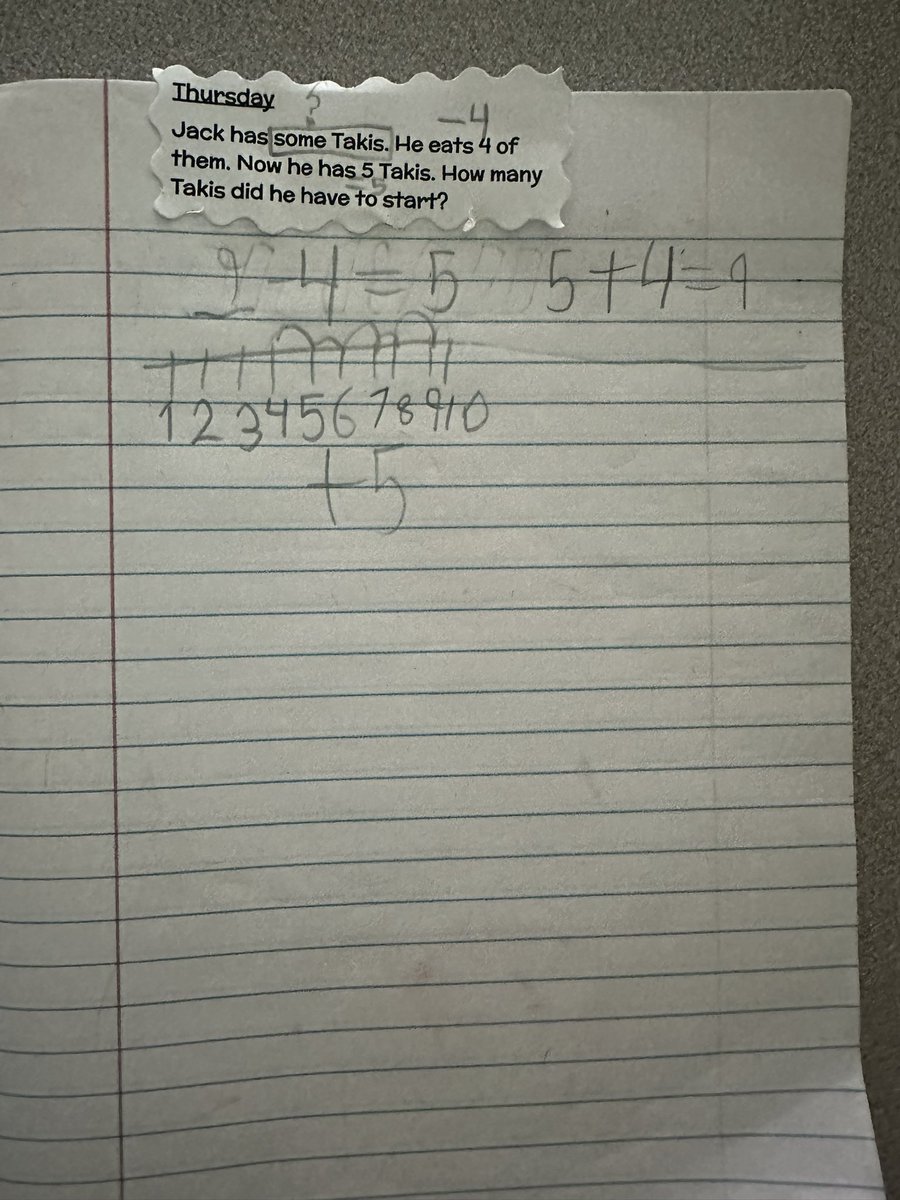 Thursday ?
-4
Jack has some Takis. He eats 4 of
them. Now he has 5 Takis. How many
=5
Takis did he have to start?
9-4=5 5+4=9
1 2 3 4 5 6 7 8 9 10
+5